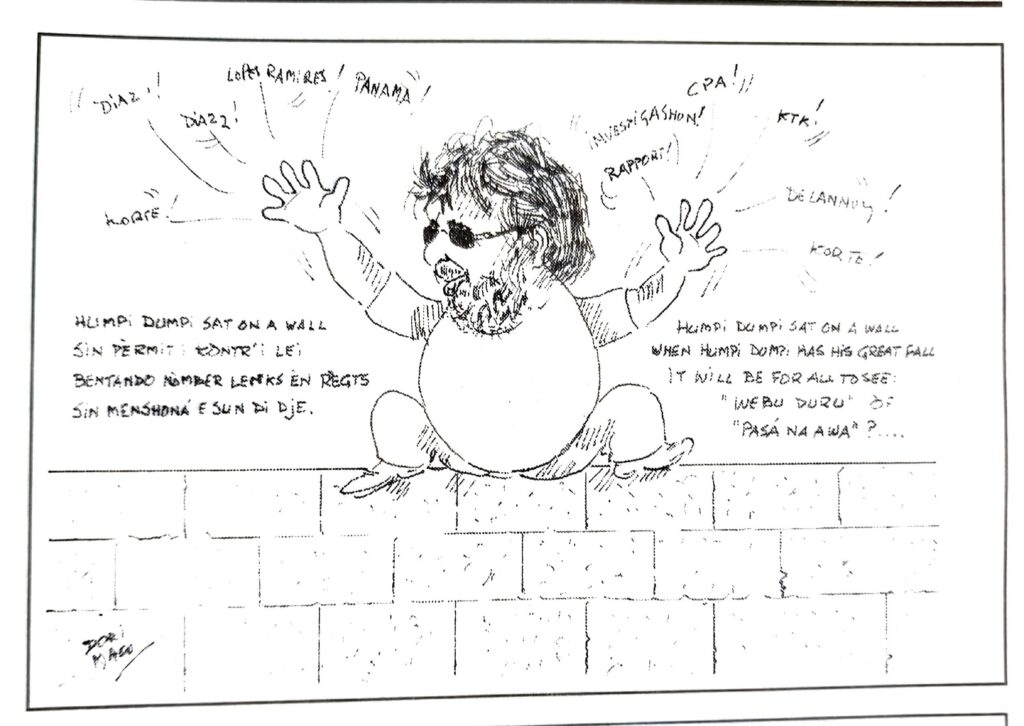 "DIAZ!
DIAZZ!
LOPES RAMIRES!
PANAMA"!
KORSE"!
"INVESTIGASHON!
RAPPORT!
CPA!"
KTK!
DELANNOY!
KORTE!
HUMPI DUMPI SAT ON A WALL
SIN PÈRMIT I KONTR'I LEI
BENTANDO NÒMBER LENKS EN REGTS
SIN MENSHONÁ E SUN DI DJE.
HUMPI DUMPI SAT ON A WALL
WHEN HUMPI DUMPI HAS HIS GREAT FALL
IT WILL BE FOR ALL TO SEE:
"WEBU DURU" OF
"PASÁ NA AWA"?....